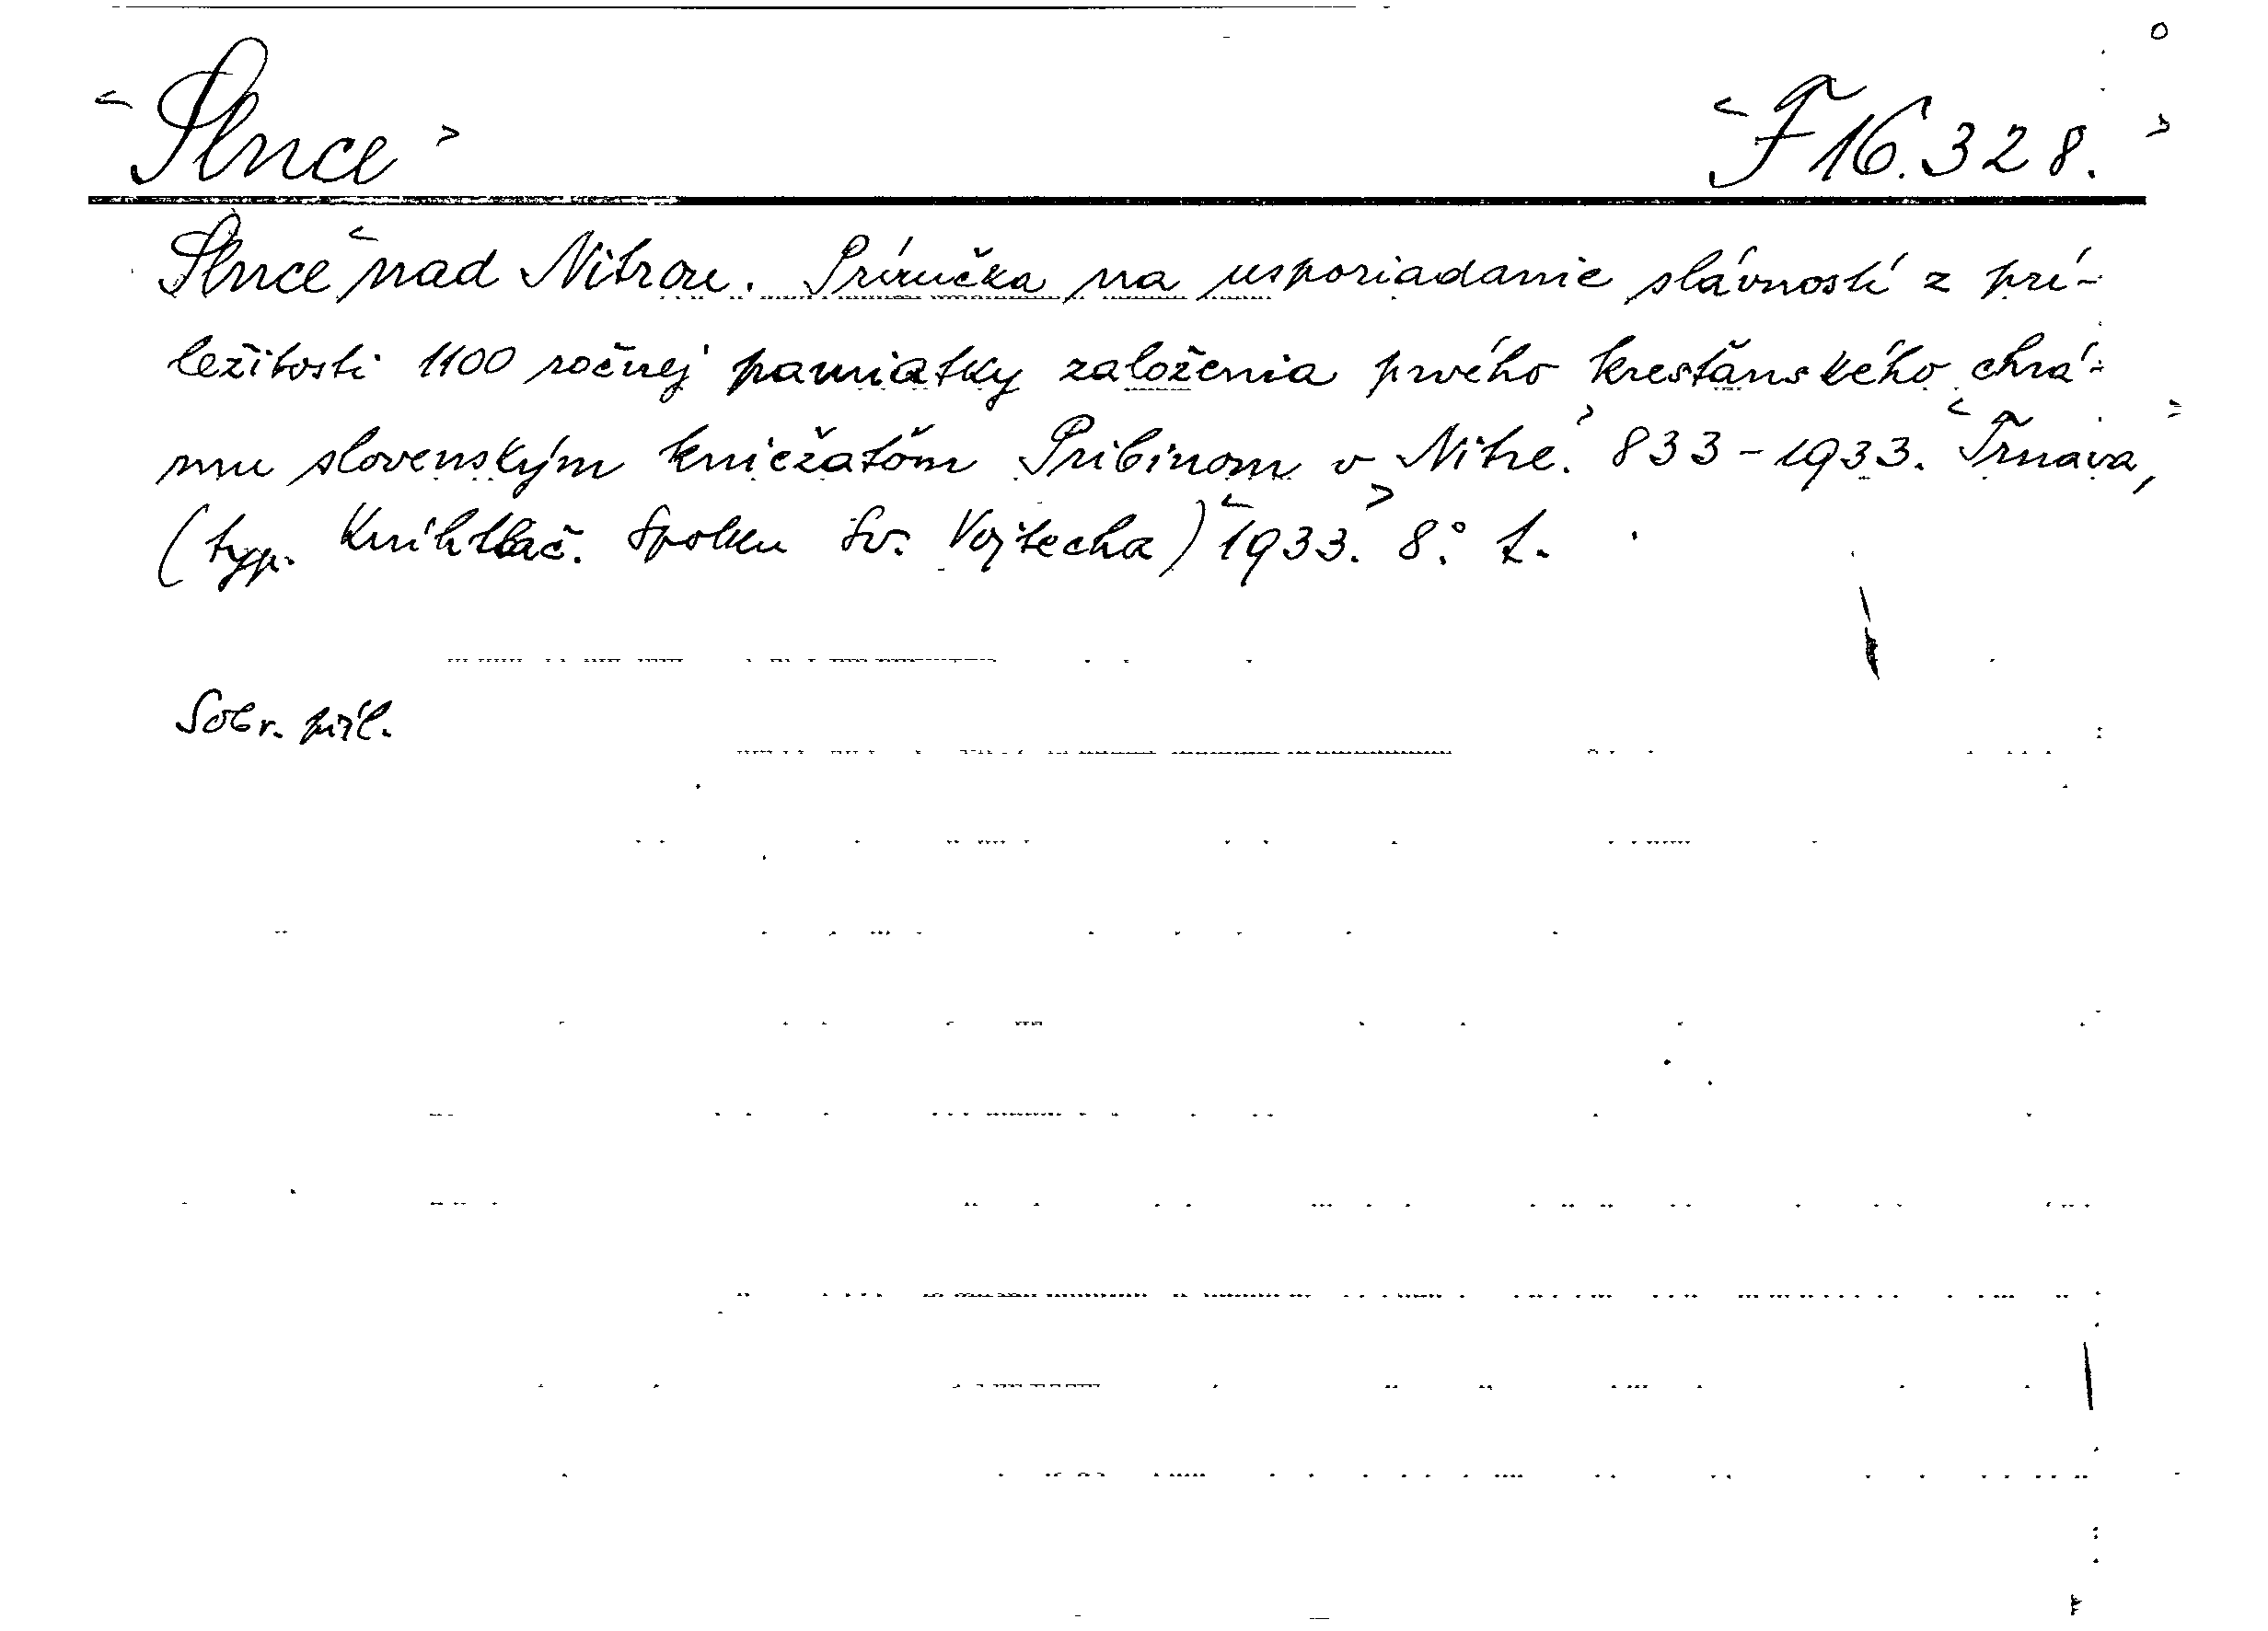 <Slnce> <F 16.328.>
Slnce <nad Nitrou. Príručka na usporiadanie slávností z prí-
ležitosti 1100 ročnej pamiatky založenia prvého kresťanského chrá-
mu slovenským kniežaťom Pribinom v Nitre.> 833-1933. <Trnava,>
(typ. Kníhtlač. Spolku Sv. Vojtecha) <1933.> 8°. 1.
Sobr. příl.